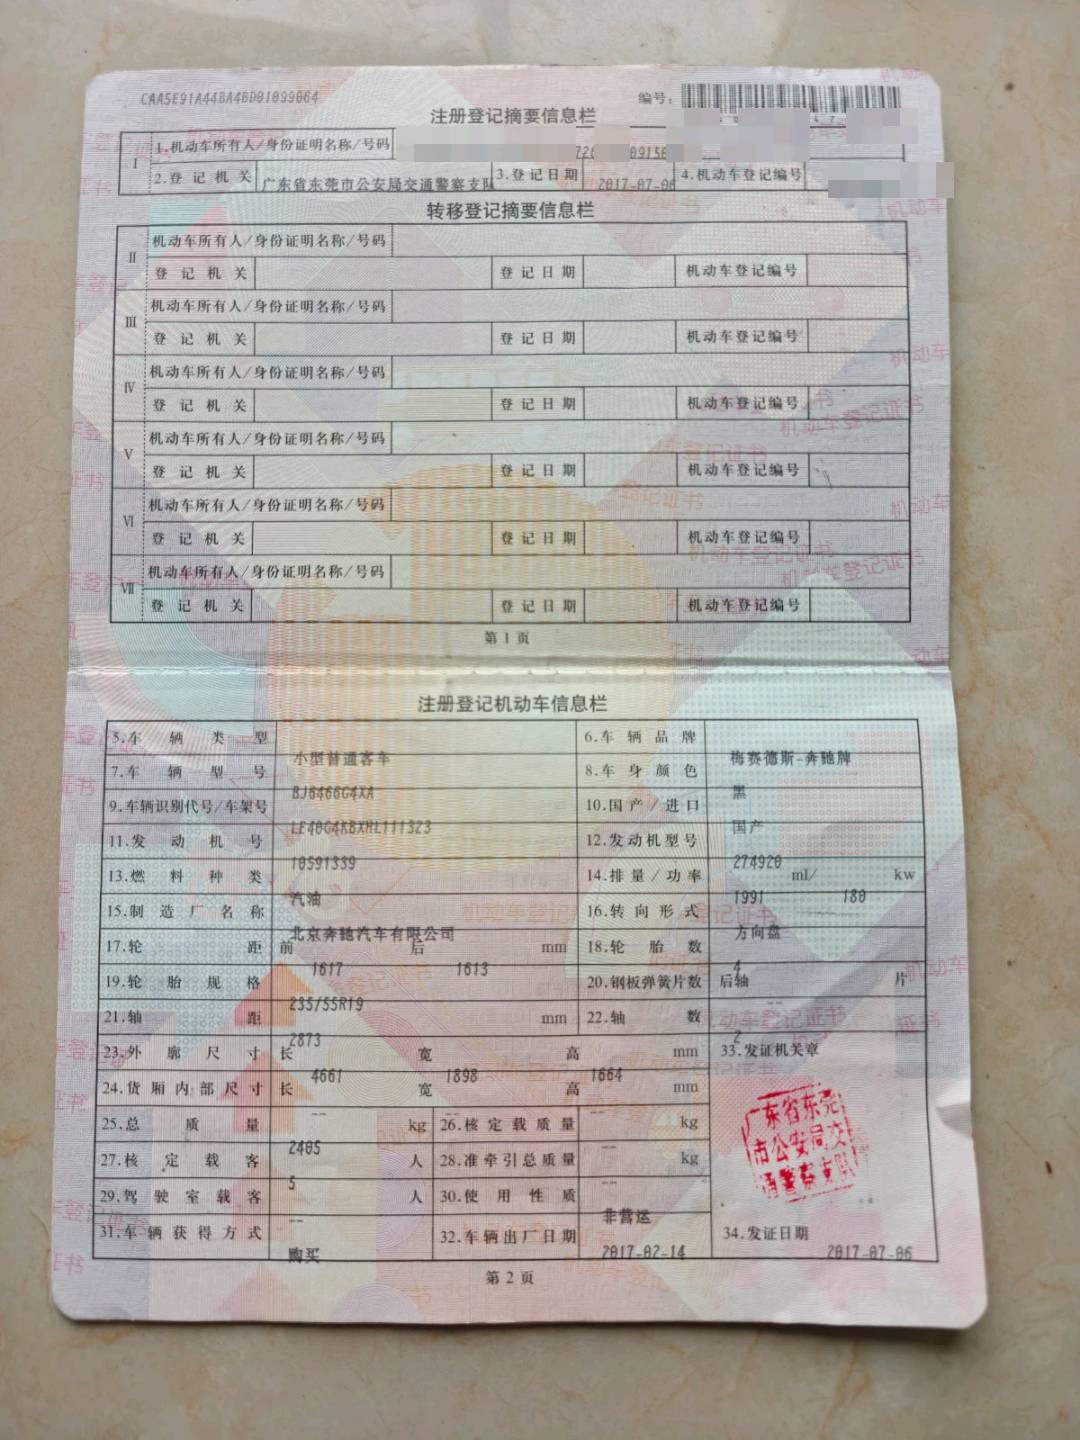 CAA5E91A44BA4BD01099064
编号:
注册登记摘要信息栏
I 1.机动车所有人/身份证明名称/号码
2.登记机关 广东省东莞市公安局交通警察支队 3.登记日期 2017-07-06 4.机动车登记编号
转移登记摘要信息栏
II 机动车所有人/身份证明名称/号码
登记机关 登记日期 机动车登记编号
III 机动车所有人/身份证明名称/号码
登记机关 登记日期 机动车登记编号
IV 机动车所有人/身份证明名称/号码
登记机关 登记日期 机动车登记编号
V 机动车所有人/身份证明名称/号码
登记机关 登记日期 机动车登记编号
VI 机动车所有人/身份证明名称/号码
登记机关 登记日期 机动车登记编号
VII 机动车所有人/身份证明名称/号码
登记机关 登记日期 机动车登记编号
第1页
注册登记机动车信息栏
5.车辆类型 小型普通客车 6.车辆品牌 梅赛德斯-奔驰牌
7.车辆型号 BJ6466G4XA 8.车身颜色 黑
9.车辆识别代号/车架号 LE40G4KBXHL111323 10.国产/进口 国产
11.发动机号 10591339 12.发动机型号 274920
13.燃料种类 汽油 14.排量/功率 1991 ml/ 180 kw
15.制造厂名称 北京奔驰汽车有限公司 16.转向形式 方向盘
17.轮距 前 1617 后 1613 mm 18.轮胎数 4
19.轮胎规格 235/55R19 20.钢板弹簧片数 后轴 -- 片
21.轴距 2873 mm 22.轴数 2
23.外廓尺寸 长 4661 宽 1898 高 1664 mm 33.发证机关章
24.货厢内部尺寸 长 -- 宽 -- 高 -- mm
25.总质量 2405 kg 26.核定载质量 -- kg
27.核定载客 5 人 28.准牵引总质量 -- kg
29.驾驶室载客 -- 人 30.使用性质 非营运
31.车辆获得方式 购买 32.车辆出厂日期 2017-02-14 34.发证日期 2017-07-06
广东省东莞
市公安局交
通警察支队
第2页